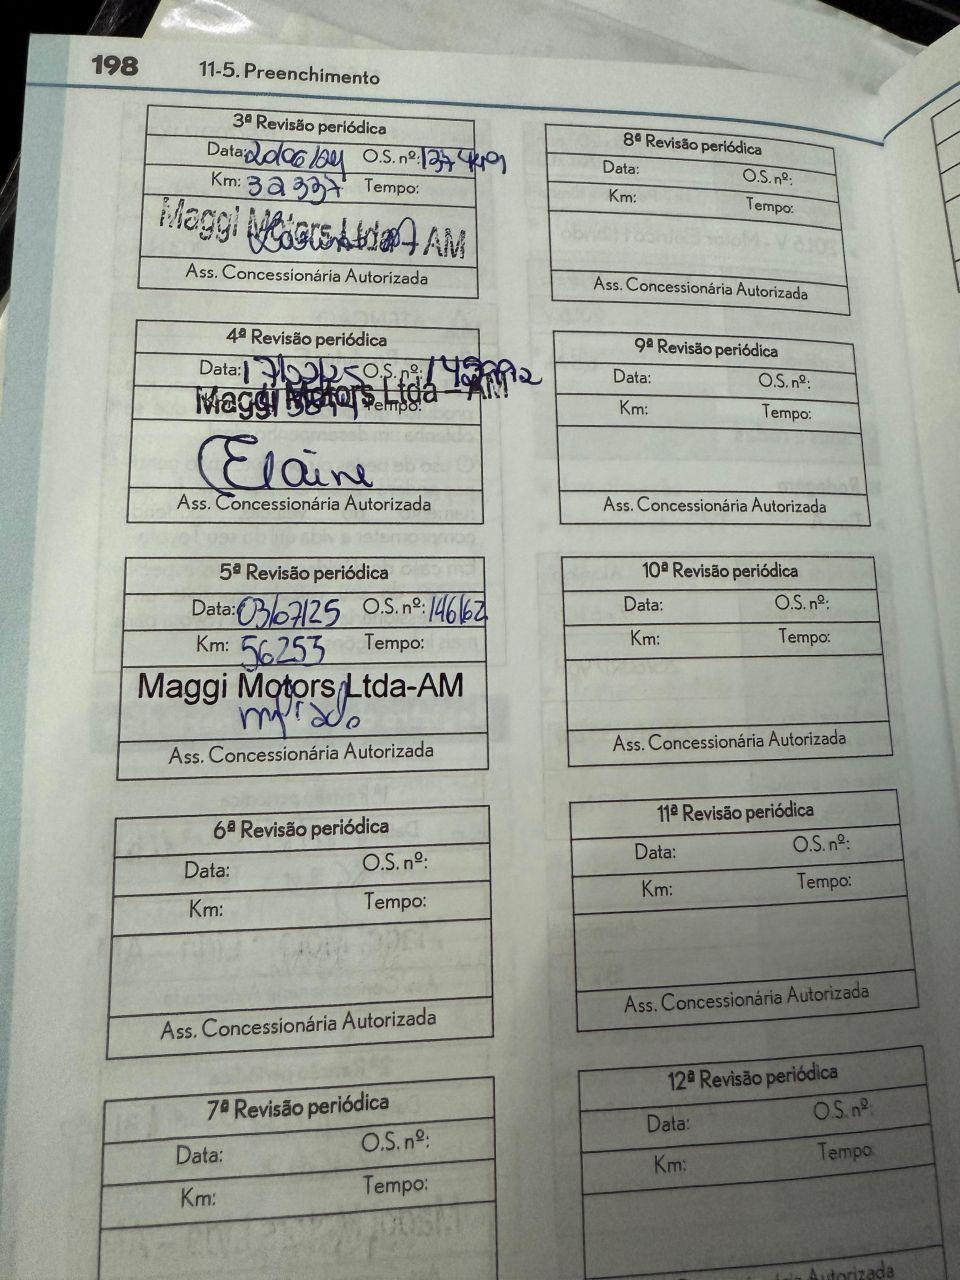 198
11-5. Preenchimento
3ª Revisão periódica
Data: O.S. nº:
Km: 32337 Tempo:
Maggi Motors Ltda - AM
Ass. Concessionária Autorizada
4ª Revisão periódica
Data: O.S. nº:
Km: Tempo:
Maggi Motors Ltda - AM
Elaine
Ass. Concessionária Autorizada
5ª Revisão periódica
Data: 03/07/25 O.S. nº: 146162
Km: 56253 Tempo:
Maggi Motors Ltda-AM
Ass. Concessionária Autorizada
6ª Revisão periódica
Data: O.S. nº:
Km: Tempo:
Ass. Concessionária Autorizada
7ª Revisão periódica
Data: O.S. nº:
Km: Tempo:
8ª Revisão periódica
Data: O.S. nº:
Km: Tempo:
Ass. Concessionária Autorizada
9ª Revisão periódica
Data: O.S. nº:
Km: Tempo:
Ass. Concessionária Autorizada
10ª Revisão periódica
Data: O.S. nº:
Km: Tempo:
Ass. Concessionária Autorizada
11ª Revisão periódica
Data: O.S. nº:
Km: Tempo:
Ass. Concessionária Autorizada
12ª Revisão periódica
Data: O.S. nº:
Km: Tempo
Autorizada